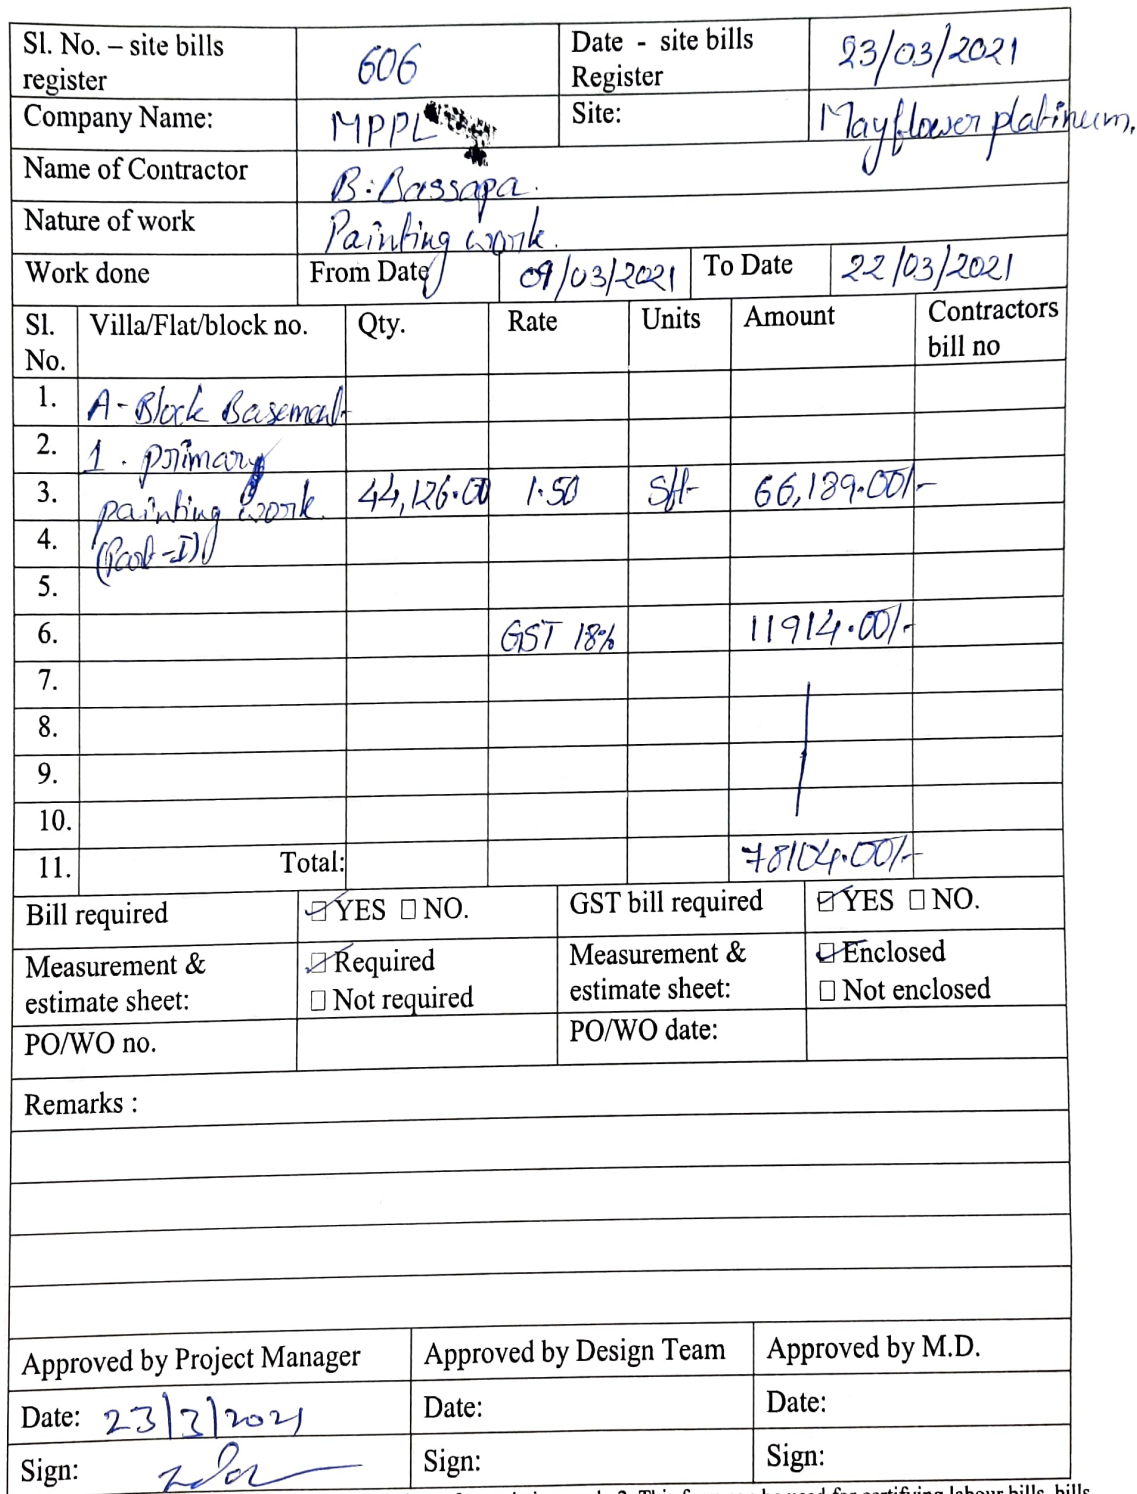 Sl. No. – site bills register 606 Date - site bills Register 23/03/2021
Company Name: MPPL Site: Mayflower platinum.
Name of Contractor B. Bassapa.
Nature of work Painting work.
Work done From Date 09/03/2021 To Date 22/03/2021
Sl. No. Villa/Flat/block no. Qty. Rate Units Amount Contractors bill no
1. A-Block Basement
2. 1. primary
3. painting work 44,126.00 1.50 Sft 66,189.00/-
4. (Part-I)
5.
6. GST 18% 11914.00/-
7.
8.
9.
10.
11. Total: 78104.00/-
Bill required ☑ YES ☐ NO. GST bill required ☑ YES ☐ NO.
Measurement & estimate sheet: ☑ Required ☐ Not required Measurement & estimate sheet: ☑ Enclosed ☐ Not enclosed
PO/WO no. PO/WO date:
Remarks :
Approved by Project Manager Approved by Design Team Approved by M.D.
Date: 23/3/2021 Date: Date:
Sign: Sign: Sign: